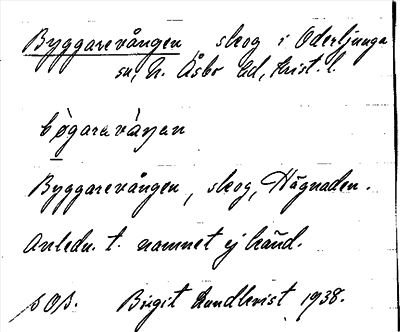 Byggarevången, skog i Oderljunga
sn, N. Åsbo hd, Krist. l.
bø̀garavàŋan
Byggarevången, skog, Hägnaden.
Anledn. t. namnet ej känd.
Birgit Lundkvist 1938.